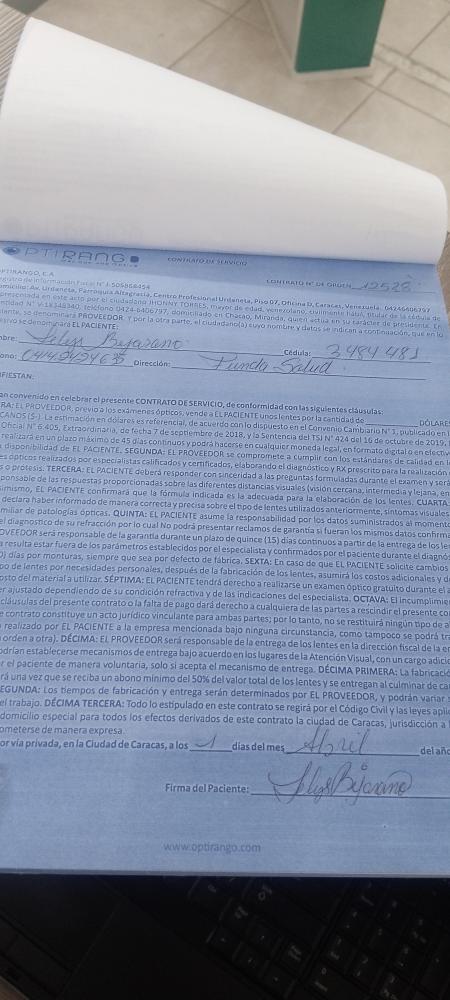 OPTIRANGO
CONTRATO DE SERVICIO
CONTRATO N° DE ORDEN 12528
OPTIRANGO, C.A
Registro de Información Fiscal N° J-505868454
Domicilio: Av. Urdaneta, Parroquia Altagracia, Centro Profesional Urdaneta, Piso 07, Oficina D, Caracas, Venezuela. 04246406797
presentada en este acto por el ciudadano JHONNY TORRES, mayor de edad, venezolano, civilmente hábil, titular de la cédula de
identidad N° V-18345340, teléfono 0424-6406797, domiciliado en Chacao, Miranda, quien actúa en su carácter de presidente. En
adelante, se denominará PROVEEDOR. Y por la otra parte, el ciudadano(a) cuyo nombre y datos se indican a continuación, que en lo
sucesivo se denominará EL PACIENTE:
bre: Felys Bejarano Cédula: 3484481
ono: 04142424635 Dirección: Funda Salud
IFIESTAN:
an convenido en celebrar el presente CONTRATO DE SERVICIO, de conformidad con las siguientes cláusulas:
RA: EL PROVEEDOR, previo a los exámenes ópticos, vende a EL PACIENTE unos lentes por la cantidad de DÓLARES
CANOS ($-). La estimación en dólares es referencial, de acuerdo con lo dispuesto en el Convenio Cambiario N° 1, publicado en l
Oficial N° 6.405, Extraordinaria, de fecha 7 de septiembre de 2018, y la Sentencia del TSJ N° 424 del 16 de octubre de 2019,
realizará en un plazo máximo de 45 días continuos y podrá hacerse en cualquier moneda legal, en formato digital o en efectiv
a disponibilidad de EL PACIENTE. SEGUNDA: EL PROVEEDOR se compromete a cumplir con los estándares de calidad en l
es ópticos realizados por especialistas calificados y certificados, elaborando el diagnóstico y RX prescrito para la realización
s o prótesis. TERCERA: EL PACIENTE deberá responder con sinceridad a las preguntas formuladas durante el examen y será
ponsable de las respuestas proporcionadas sobre las diferentes distancias visuales (visión cercana, intermedia y lejana, en
imismo, EL PACIENTE confirmará que la fórmula indicada es la adecuada para la elaboración de los lentes. CUARTA:
declara haber informado de manera correcta y precisa sobre el tipo de lentes utilizados anteriormente, síntomas visuales
miliar de patologías ópticas. QUINTA: EL PACIENTE asume la responsabilidad por los datos suministrados al momento
el diagnóstico de su refracción por lo cual No podrá presentar reclamos de garantía si fueran los mismos datos confirma
OVEEDOR será responsable de la garantía durante un plazo de quince (15) días continuos a partir de la entrega de los le
resulta estar fuera de los parámetros establecidos por el especialista y confirmados por el paciente durante el diagnós
0) días por monturas, siempre que sea por defecto de fábrica. SEXTA: En caso de que EL PACIENTE solicite cambios
po de lentes por necesidades personales, después de la fabricación de los lentes, asumirá los costos adicionales y d
osto del material a utilizar. SÉPTIMA: EL PACIENTE tendrá derecho a realizarse un examen óptico gratuito durante el
er ajustado dependiendo de su condición refractiva y de las indicaciones del especialista. OCTAVA: El incumplimien
cláusulas del presente contrato o la falta de pago dará derecho a cualquiera de las partes a rescindir el presente co
e contrato constituye un acto jurídico vinculante para ambas partes; por lo tanto, no se restituirá ningún tipo de a
realizado por EL PACIENTE a la empresa mencionada bajo ninguna circunstancia, como tampoco se podrá tr
orden a otra). DÉCIMA: EL PROVEEDOR será responsable de la entrega de los lentes en la dirección fiscal de la e
odrían establecerse mecanismos de entrega bajo acuerdo en los lugares de la Atención Visual, con un cargo adici
r el paciente de manera voluntaria, solo si acepta el mecanismo de entrega. DÉCIMA PRIMERA: La fabricació
rá una vez que se reciba un abono mínimo del 50% del valor total de los lentes y se entregan al culminar de ca
EGUNDA: Los tiempos de fabricación y entrega serán determinados por EL PROVEEDOR, y podrán variar
el trabajo. DÉCIMA TERCERA: Todo lo estipulado en este contrato se regirá por el Código Civil y las leyes apli
domicilio especial para todos los efectos derivados de este contrato la ciudad de Caracas, jurisdicción a
ometerse de manera expresa.
or vía privada, en la Ciudad de Caracas, a los 1 días del mes Abril del año
Firma del Paciente: Felys Bejarano
www.optirango.com